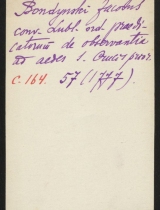 Bondynski Jacobus
conv. Lubl. ord. praedi-
catorum de observantia
ad aedes S. Crucis prov.
c. 164. 57 (1777)